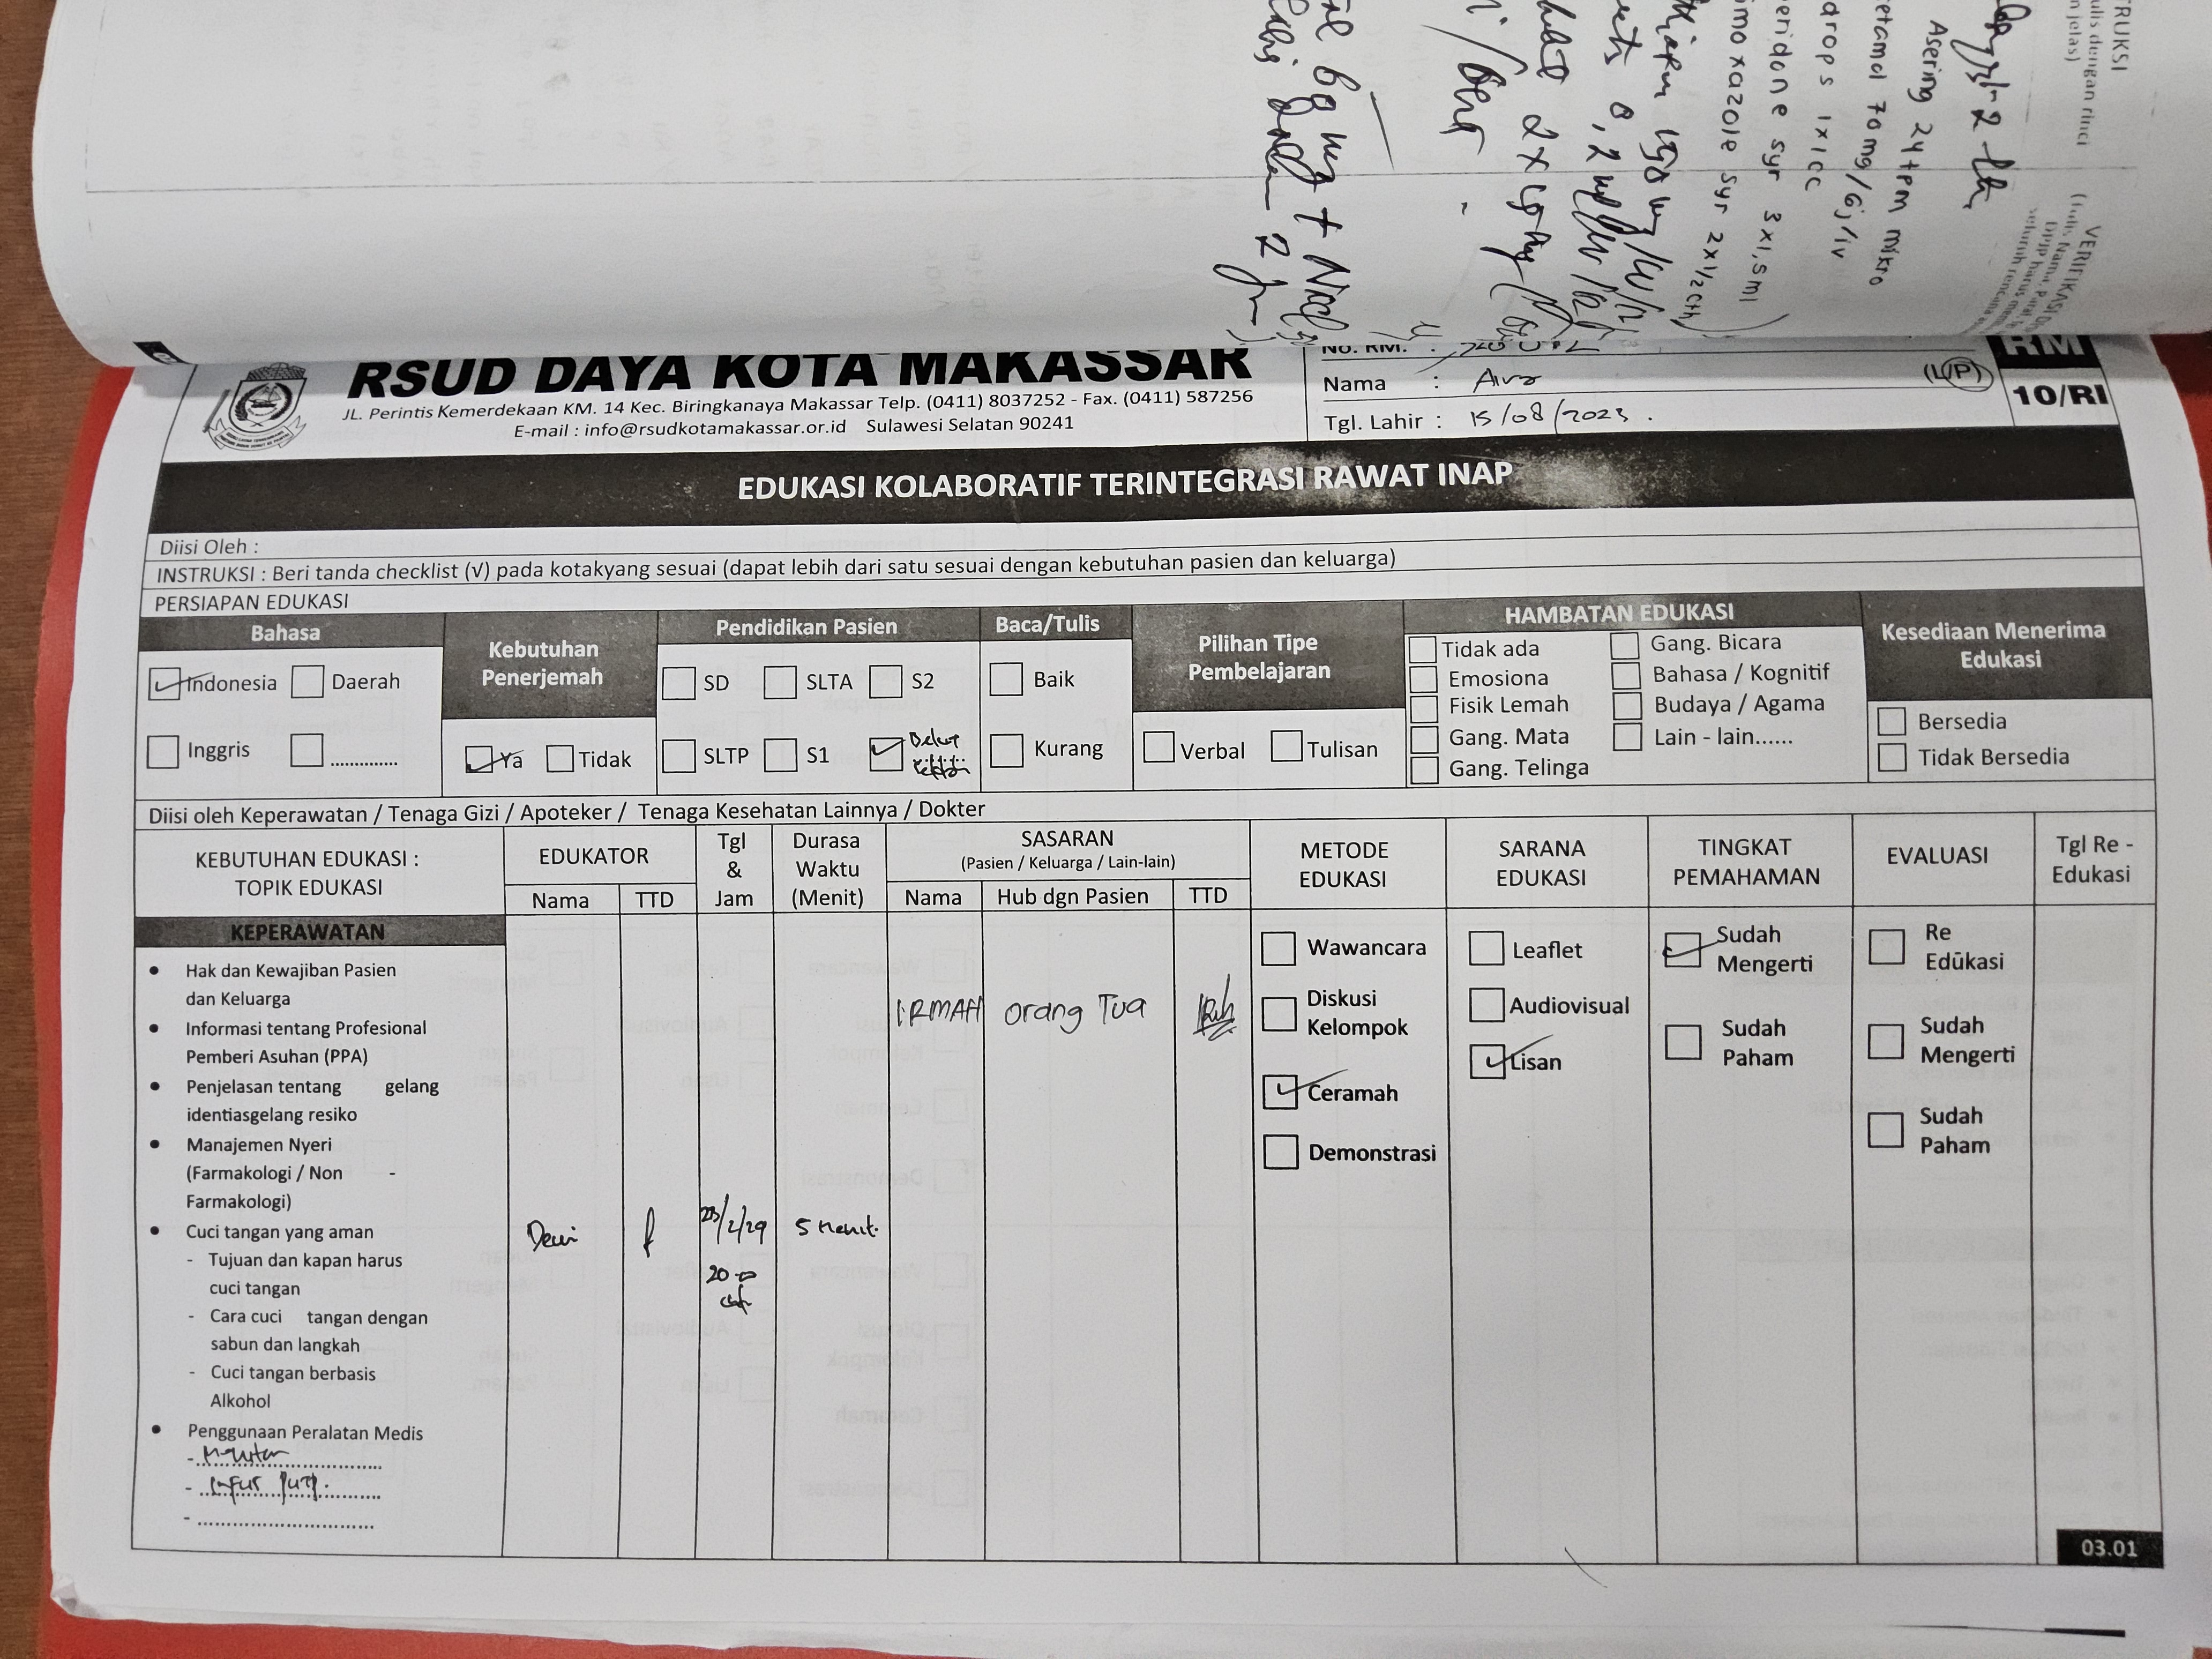 TRUKSI
ulis dengan rinci
n jelas)
VERIFIKASI
Asering 24 tpm mikro
etamol 70 mg/6j/iv
drops 1x1 cc
eridone syr 3x1,5 ml
imoxazole syr 2x1/2 cth
RSUD DAYA KOTA MAKASSAR
JL. Perintis Kemerdekaan KM. 14 Kec. Biringkanaya Makassar Telp. (0411) 8037252 - Fax. (0411) 587256
E-mail : info@rsudkotamakassar.or.id Sulawesi Selatan 90241
No. RM. :
Nama : (L/P)
Tgl. Lahir : 15/08/2023.
RM
10/RI
EDUKASI KOLABORATIF TERINTEGRASI RAWAT INAP
Diisi Oleh :
INSTRUKSI : Beri tanda checklist (√) pada kotakyang sesuai (dapat lebih dari satu sesuai dengan kebutuhan pasien dan keluarga)
PERSIAPAN EDUKASI
Bahasa
Indonesia Daerah
Inggris ..............
Kebutuhan
Penerjemah
Ya Tidak
Pendidikan Pasien
SD SLTA S2
SLTP S1 Belum
Baca/Tulis
Baik
Kurang
Pilihan Tipe
Pembelajaran
Verbal Tulisan
HAMBATAN EDUKASI
Tidak ada Gang. Bicara
Emosiona Bahasa / Kognitif
Fisik Lemah Budaya / Agama
Gang. Mata Lain - lain......
Gang. Telinga
Kesediaan Menerima
Edukasi
Bersedia
Tidak Bersedia
Diisi oleh Keperawatan / Tenaga Gizi / Apoteker / Tenaga Kesehatan Lainnya / Dokter
KEBUTUHAN EDUKASI :
TOPIK EDUKASI
EDUKATOR
Nama TTD
Tgl
&
Jam
Durasa
Waktu
(Menit)
SASARAN
(Pasien / Keluarga / Lain-lain)
Nama Hub dgn Pasien TTD
METODE
EDUKASI
SARANA
EDUKASI
TINGKAT
PEMAHAMAN
EVALUASI
Tgl Re -
Edukasi
KEPERAWATAN
• Hak dan Kewajiban Pasien
dan Keluarga
• Informasi tentang Profesional
Pemberi Asuhan (PPA)
• Penjelasan tentang gelang
identiasgelang resiko
• Manajemen Nyeri
(Farmakologi / Non -
Farmakologi)
• Cuci tangan yang aman
- Tujuan dan kapan harus
cuci tangan
- Cara cuci tangan dengan
sabun dan langkah
- Cuci tangan berbasis
Alkohol
• Penggunaan Peralatan Medis
-
- Infus
- ..............................
Dewi
5 menit.
IRMAH
orang Tua
Wawancara
Diskusi
Kelompok
Ceramah
Demonstrasi
Leaflet
Audiovisual
Lisan
Sudah
Mengerti
Sudah
Paham
Re
Edukasi
Sudah
Mengerti
Sudah
Paham
03.01